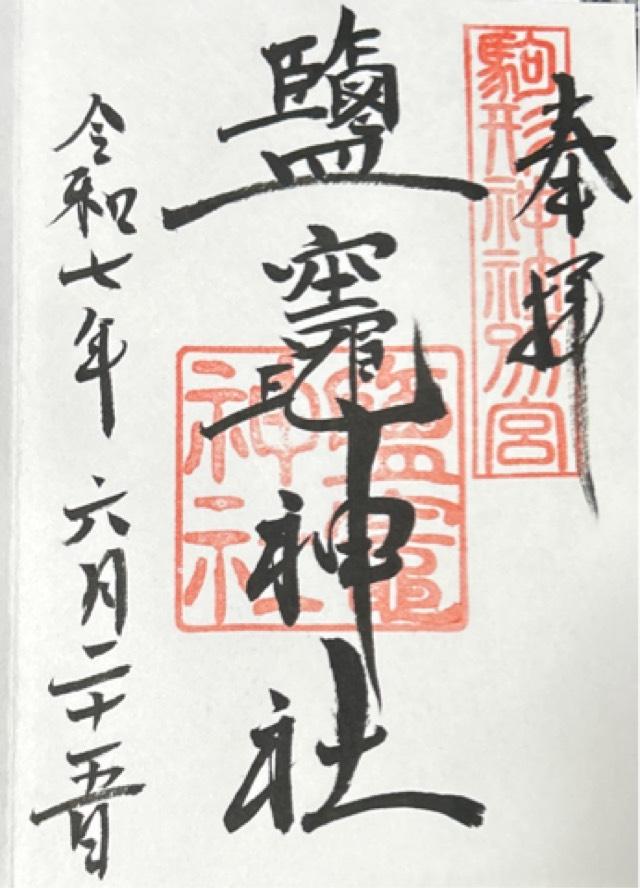 奉拝
駒形神社別宮
鹽竈神社
鹽竈
神社
令和七年六月二十五日